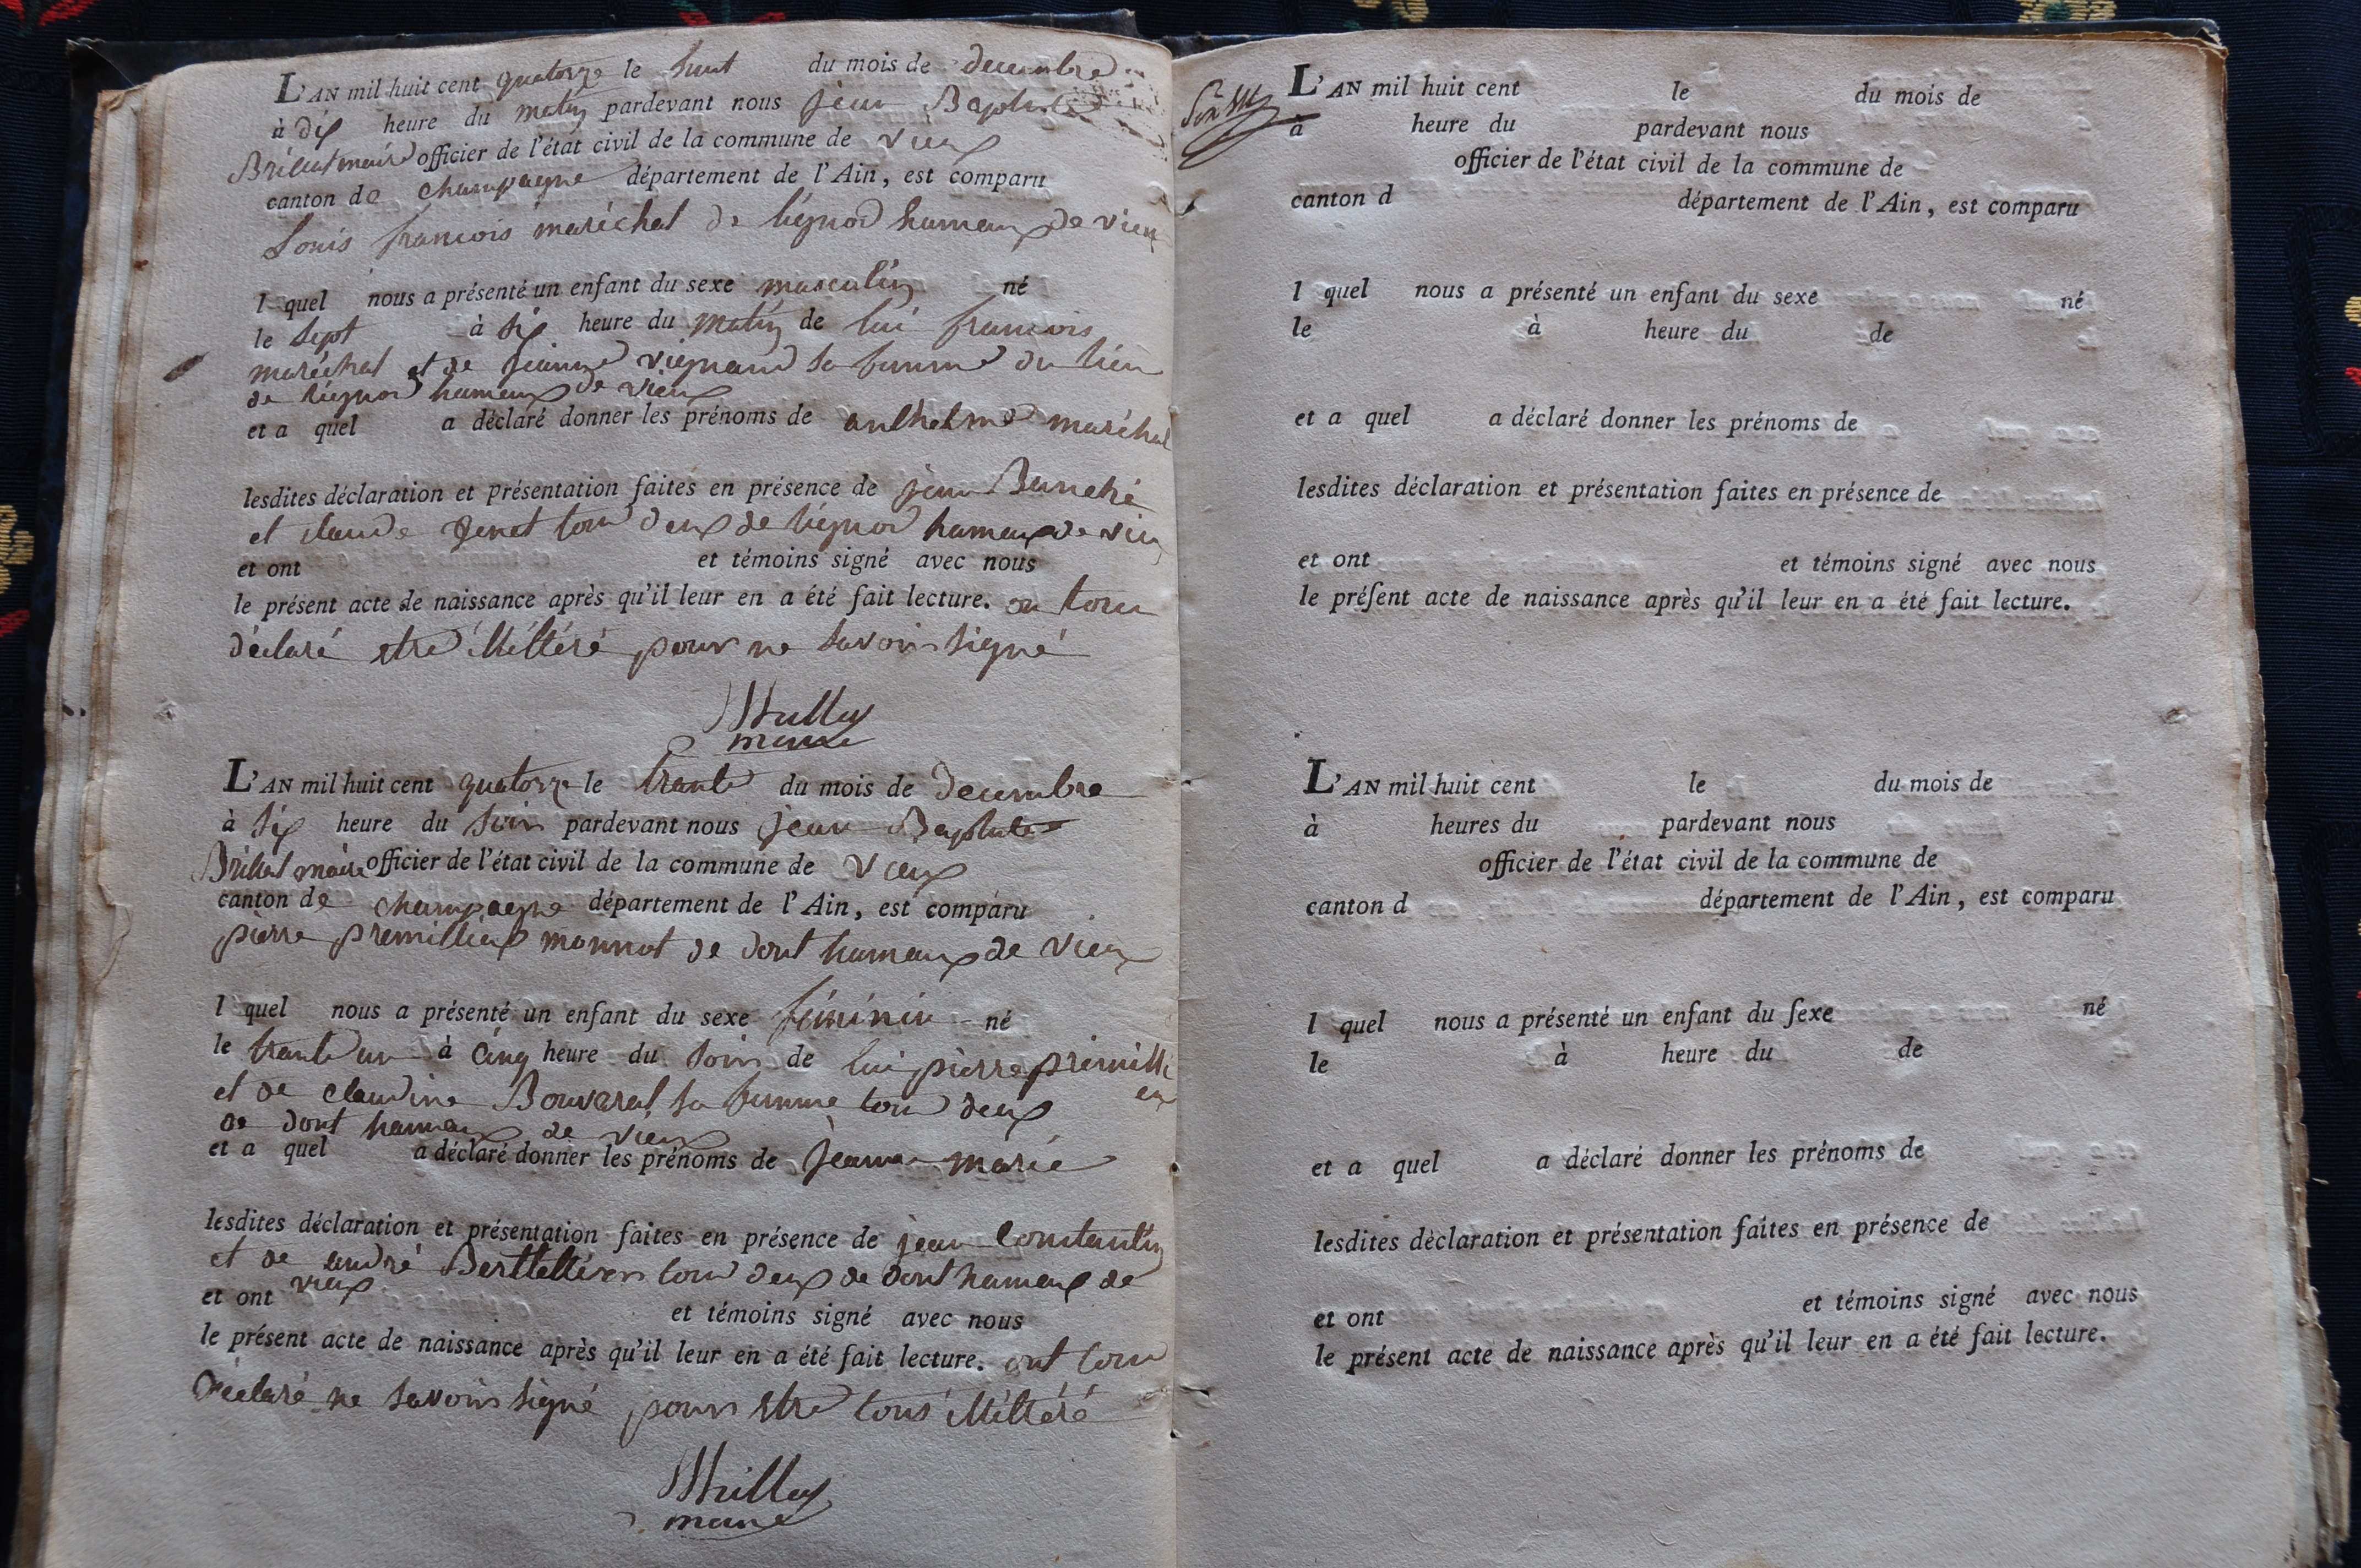 L'AN mil huit cent quatorze le huit du mois de decembre
à dix heure du matin pardevant nous jean Baptiste
Brillat maire officier de l'état civil de la commune de vieux
canton de champagne département de l'Ain, est comparu
Louis francois maréchal de lignod hameaux de vieux
l quel nous a présenté un enfant du sexe masculin né
le sept à six heure du matin de lui francois
maréchal et de jeanne vignand sa femme du lieu
de lignod hameaux de vieux
et a quel a déclaré donner les prénoms de anthelme maréchal
lesdites déclaration et présentation faites en présence de jean
et claude Genet tour deux de lignod hameaux de vieux
et ont et témoins signé avec nous
le présent acte de naissance après qu'il leur en a été fait lecture. on tour
déclaré etre illittéré pour ne savoir signé
Brillat
maire
L'AN mil huit cent quatorze le trante du mois de decembre
à six heure du soir pardevant nous jean Baptiste
Brillat maire officier de l'état civil de la commune de vieux
canton de champagne département de l'Ain, est comparu
pierre premillieux monnot de dont hameaux de vieux
l quel nous a présenté un enfant du sexe féminin né
le trante un à cinq heure du soir de lui pierre premilli
eux
et de claudine Bouvard sa femme tour deux
de dont hameaux de vieux
et a quel a déclaré donner les prénoms de jeanne marie
lesdites déclaration et présentation faites en présence de jean Constantin
et de andré tour deux de dont hameaux de
vieux
et ont et témoins signé avec nous
le présent acte de naissance après qu'il leur en a été fait lecture. ont tour
déclaré ne savoir signé pour etre tous illittéré
Brillat
maire
L'AN mil huit cent le du mois de
à heure du pardevant nous
officier de l'état civil de la commune de
canton d département de l'Ain, est comparu
l quel nous a présenté un enfant du sexe né
le à heure du de
et a quel a déclaré donner les prénoms de
lesdites déclaration et présentation faites en présence de
et ont et témoins signé avec nous
le préſent acte de naissance après qu'il leur en a été fait lecture.
L'AN mil huit cent le du mois de
à heures du pardevant nous
officier de l'état civil de la commune de
canton d département de l'Ain, est comparu
l quel nous a présenté un enfant du ſexe né
le à heure du de
et a quel a déclaré donner les prénoms de
lesdites déclaration et présentation faites en présence de
et ont et témoins signé avec nous
le présent acte de naissance après qu'il leur en a été fait lecture.